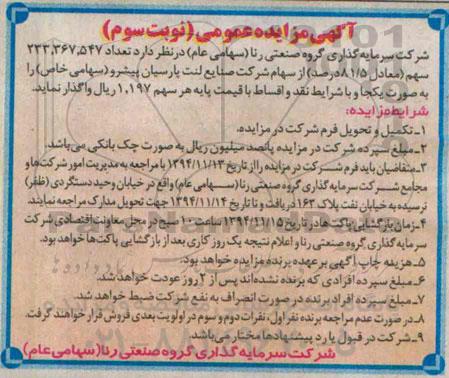 آگهی مزایده عمومی (نوبت سوم)
شرکت سرمایه گذاری گروه صنعتی رنا (سهامی عام) در نظر دارد تعداد ۲۳۳,۳۶۷,۵۴۷
سهم (معادل ۸۱/۵ درصد) از سهام شرکت صنایع لنت پارسیان پیشرو (سهامی خاص) را
به صورت یکجا و با شرایط نقد و اقساط با قیمت پایه هر سهم ۱,۱۹۷ ریال واگذار نماید.
شرایط مزایده:
۱-تکمیل و تحویل فرم شرکت در مزایده.
۲-مبلغ سپرده شرکت در مزایده پانصد میلیون ریال به صورت چک بانکی می‌باشد.
۳-متقاضیان باید فرم شرکت در مزایده را از تاریخ ۱۳۹۴/۱۱/۱۳ با مراجعه به مدیریت امور شرکت‌ها و
مجامع شرکت سرمایه گذاری گروه صنعتی رنا (سهامی عام) واقع در خیابان وحید دستگردی (ظفر)
نرسیده به خیابان نفت پلاک ۱۶۳ دریافت و تا تاریخ ۱۳۹۴/۱۱/۱۴ جهت تحویل مدارک مراجعه نمایند.
۴-زمان بازگشایی پاکت ها در تاریخ ۱۳۹۴/۱۱/۱۵ ساعت ۱۰ صبح در محل معاونت اقتصادی شرکت
سرمایه گذاری گروه صنعتی رنا و اعلام نتیجه یک روز کاری بعد از بازگشایی پاکت‌ها خواهد بود.
۵-هزینه چاپ آگهی بر عهده برنده مزایده خواهد بود.
۶-مبلغ سپرده افرادی که برنده نشده‌اند پس از ۲ روز عودت خواهد شد.
۷-مبلغ سپرده افراد برنده در صورت انصراف به نفع شرکت ضبط خواهد شد.
۸-در صورت عدم مراجعه برنده نفر اول، نفرات دوم و سوم در اولویت بعدی فروش قرار خواهند گرفت.
۹-شرکت در قبول یا رد پیشنهادها مختار می‌باشد.
شرکت سرمایه گذاری گروه صنعتی رنا (سهامی عام)